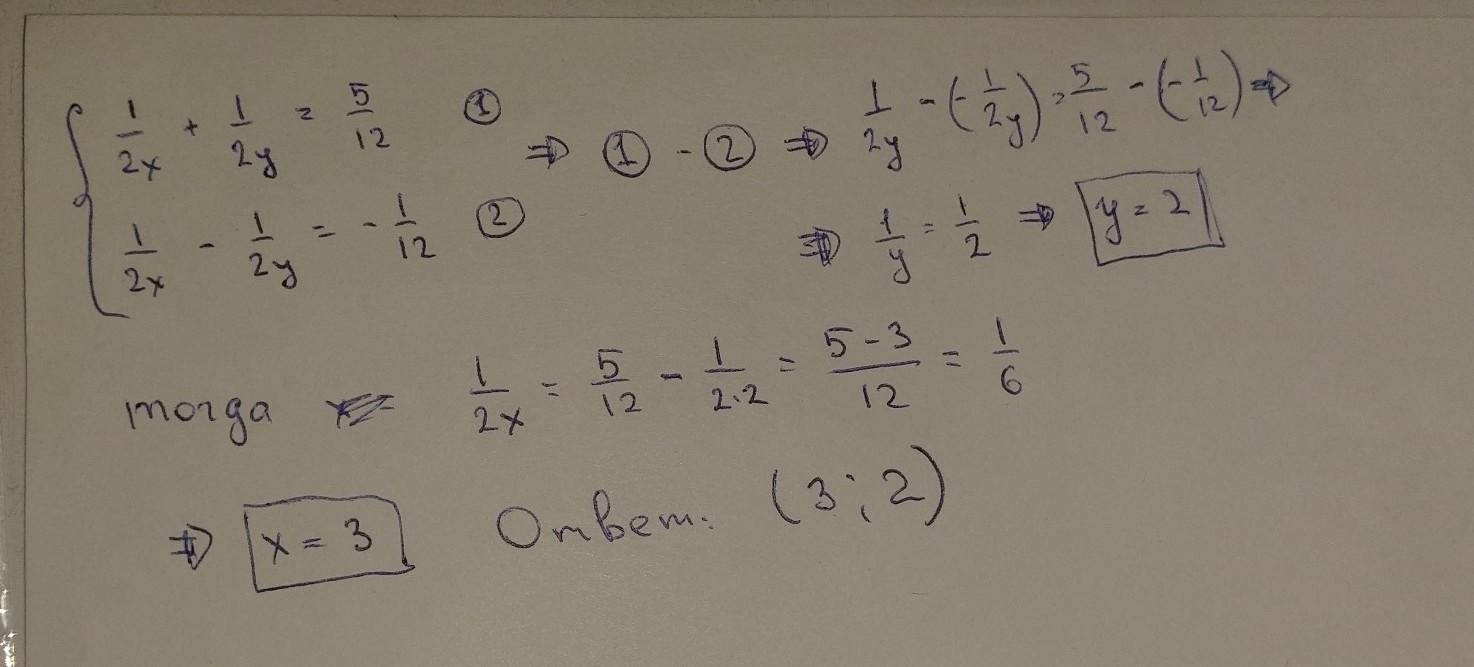 1/2x + 1/2y = 5/12 ① ⇒ ① - ② ⇒ 1/2y - (-1/2y) = 5/12 - (-1/12) ⇒
1/2x - 1/2y = -1/12 ② ⇒ 1/y = 1/2 ⇒ y = 2
тогда 1/2x = 5/12 - 1/2·2 = 5-3/12 = 1/6
⇒ x = 3 Ответ: (3; 2)